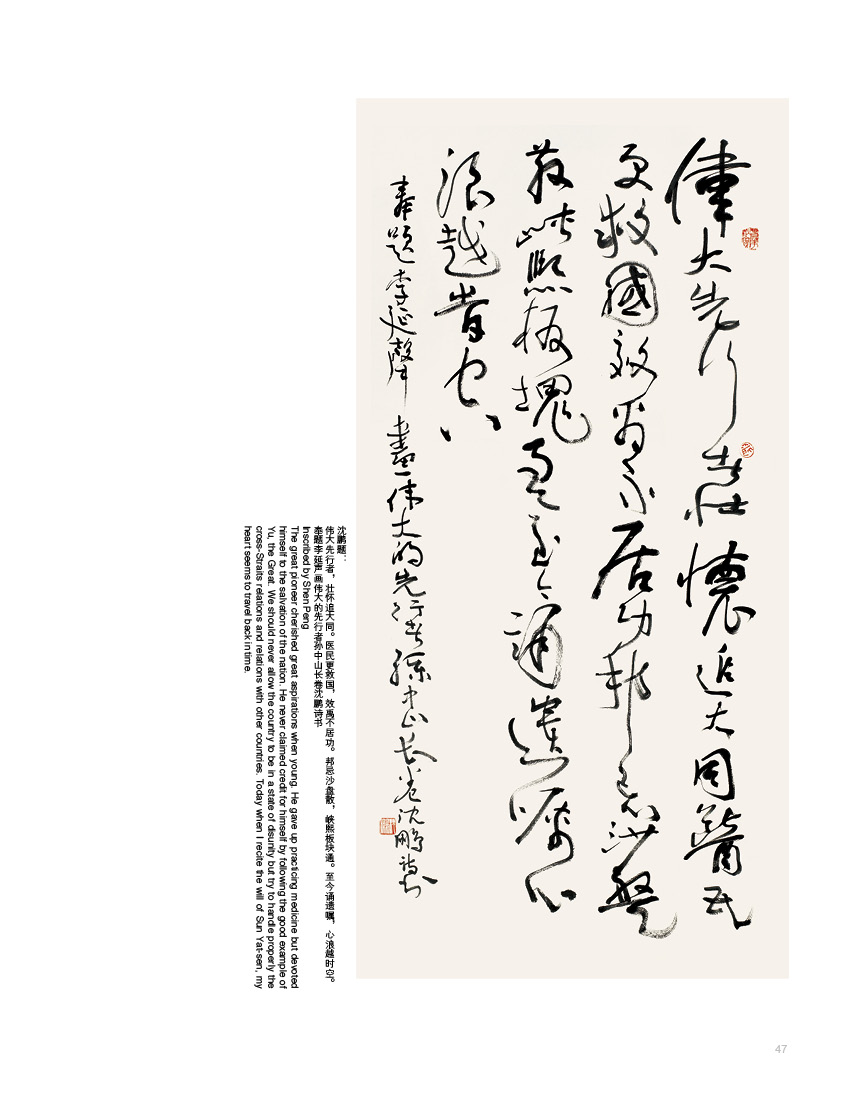 偉大先行者壯懷追大同醫民
更救國效禹不居功邦忌沙盤
散峽熙板塊通至今誦遺囑心
浪越旹空
奉題李延聲畫偉大的先行者孫中山長卷沈鵬詩書
沈鹏题：
伟大先行者，壮怀追大同。医民更救国，效禹不居功。邦忌沙盘散，峡熙板块通。至今诵遗嘱，心浪越时空。
奉题李延声画伟大的先行者孙中山长卷沈鹏诗书
Inscribed by Shen Peng
The great pioneer cherished great aspirations when young. He gave up practicing medicine but devoted
himself to the salvation of the nation. He never claimed credit for himself by following the good example of
Yu, the Great. We should never allow the country to be in a state of disunity but try to handle properly the
cross-Straits relations and relations with other countries. Today when I recite the will of Sun Yat-sen, my
heart seems to travel back in time.
47